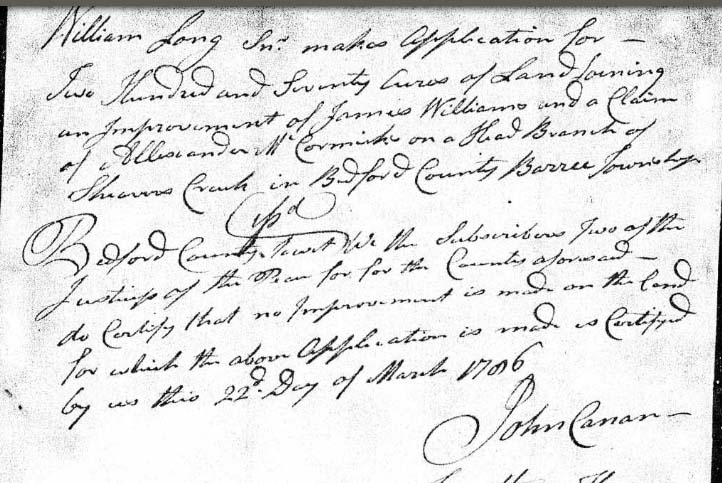 William Long Snr. makes Application for —
Two Hundred and Seventy Acres of Land Joining
an Improvement of James Williams and a Claim
of Allexander Mc Cormick on a Head Branch of
Shavers Creek in Bedford County Barree Township
Bedford County to wit We the Subscribers Two of the
Justices of the Peace for for the County aforesaid —
do Certify that no Improvement is made on the Land
for which the above Application is made as Certifyed
by us this 22d. Day of March 1786
John Canan —